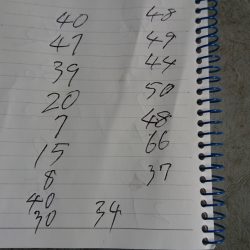 40 48
47 49
39 44
20 50
7 48
15 66
8 37
40
30 34